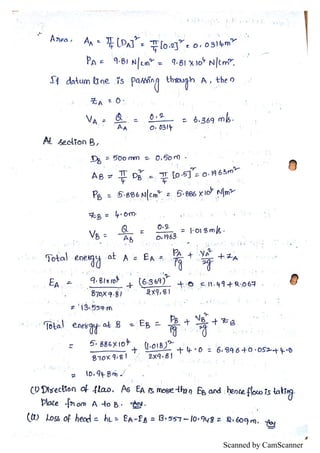 Area, A_A = π/4 [DA]² = π/4 [0.2]² = 0.0314m²
P_A = 9.81 N/cm² = 9.81 X10⁴ N/m².
If datum line is passing through A, then
Z_A = 0.
V_A = Q/A_A = 0.2/0.0314 = 6.369 m/s.
At section B,
D_B = 500mm = 0.50m.
AB = π/4 D_B² = π/4 [0.5]² = 0.1963m²
P_B = 5.886 N/cm² = 5.886 X10⁴ N/m²
Z_B = 4.0m.
V_B = Q/A_B = 0.2/0.1963 = 1.018 m/s.
Total energy at A = E_A = P_A/ρg + V_A²/2g + Z_A
E_A = 9.81x10⁴/870x9.81 + (6.369)²/2x9.81 + 0 = 11.49+2.067
= 13.557m
Total energy at B = E_B = P_B/ρg + V_B²/2g + Z_B
= 5.886X10⁴/870x9.81 + (1.018)²/2x9.81 + 4.0 = 6.896+0.052+4.0
= 10.948m.
(i) Direction of flow. As E_A is more than E_B and hence flow is taking
Place from A to B. Ans.
(ii) Loss of head = h_L = E_A-E_B = 13.557-10.948 = 2.609m. Ans
Scanned by CamScanner